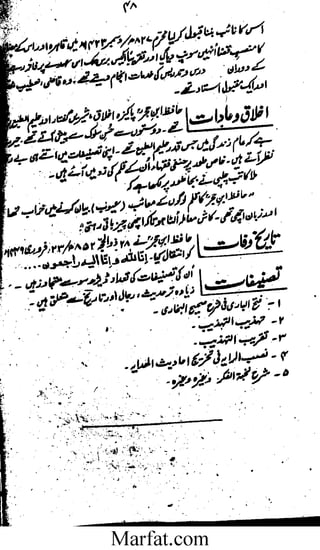 ۴۸
اس کا نائب بننا قبول کر لیا محرم ۸۲۷ھ / دسمبر ۱۴۲۳ء میں قاہرہ اور اس کے
کا منصب قضا انہیں سونپ دیا گیا اور تقریباً اکیس برس تک اس عہدے پر فائز رہے
کے دوران درس و تدریس کی خدمات انجام دیتے تھے۔ وہ قاضی، خطیب
اور ایک مقبول استاد تھے۔
اخلاق و عادات حافظ ابن حجر پاکیزہ اخلاق، شیریں گفتار اور حلیم الطبع
تھے۔ دوستوں سے حسن سلوک سے پیش آتے تھے۔
ہے کہ عام زندگی میں جس قدر حلیم الطبع تھے۔ اپنی تصنیفات میں اتنے ہی
نظر آتے ہیں۔ خاص طور پر حنفی فقہاء ان کے قلم کی زد میں آئے ہیں۔
ملا کاتب چلپی نے بجا طور پر لکھا ہے کہ
"حافظ ابن حجر کا قلم لوگوں کے معائب (عیوب) بیان کرنے میں خراب تھا
اور زبان اچھی تھی۔ کاش معاملہ الٹا ہوتا کہ اچھی چیز باقی رہتی"
تاریخ وفات حافظ ابن حجر نے ۲۸ ذوالحجہ ۸۵۲ھ / ۲۳ فروری ۱۴۴۹ء
کو انتقال کیا۔ انا للہ و انا الیہ راجعون....
تصنیفات ان کی تصنیفات کی تعداد ڈیڑھ سو سے متجاوز ہیں۔
زیادہ تر حدیث، رجال اور تاریخ سے متعلق ہیں۔
۱۔ فتح الباری فی شرح صحیح البخاری۔
۲۔ تہذیب التہذیب۔
۳۔ تقریب التہذیب۔
۴۔ نصب الرایہ فی تخریج احادیث الہدایہ۔
۵۔ شرح نخبۃ الفکر۔ وغیرہ وغیرہ۔
Marfat.com